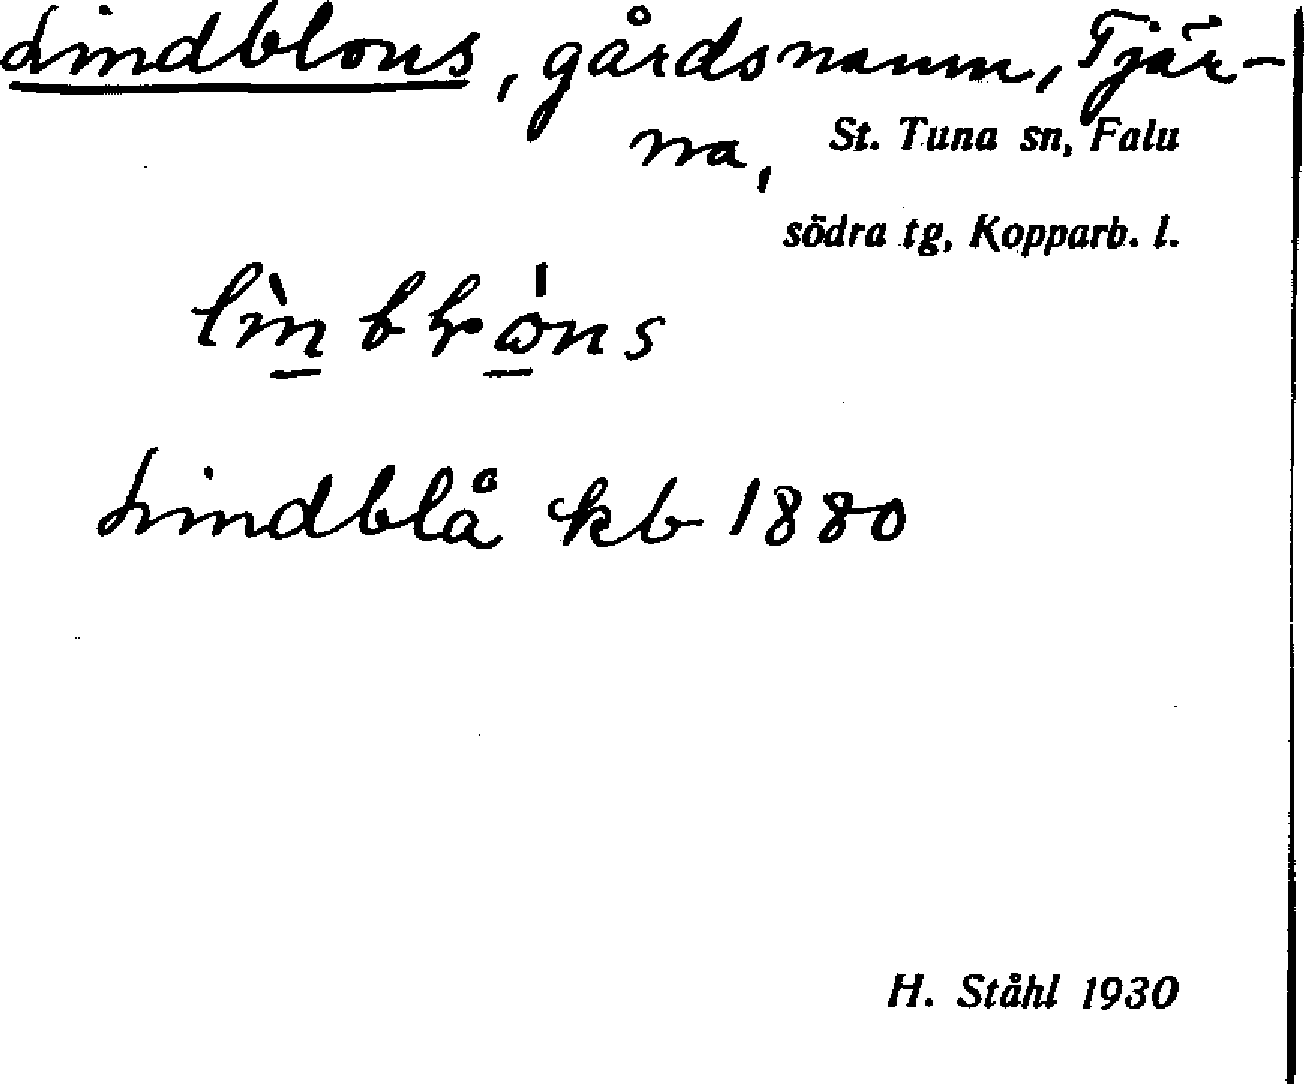 Lindblons, gårdsnamn, Tjär-
na, St. Tuna sn, Falu
södra tg, Kopparb. l.
Lindblå kb 1880
H. Ståhl 1930